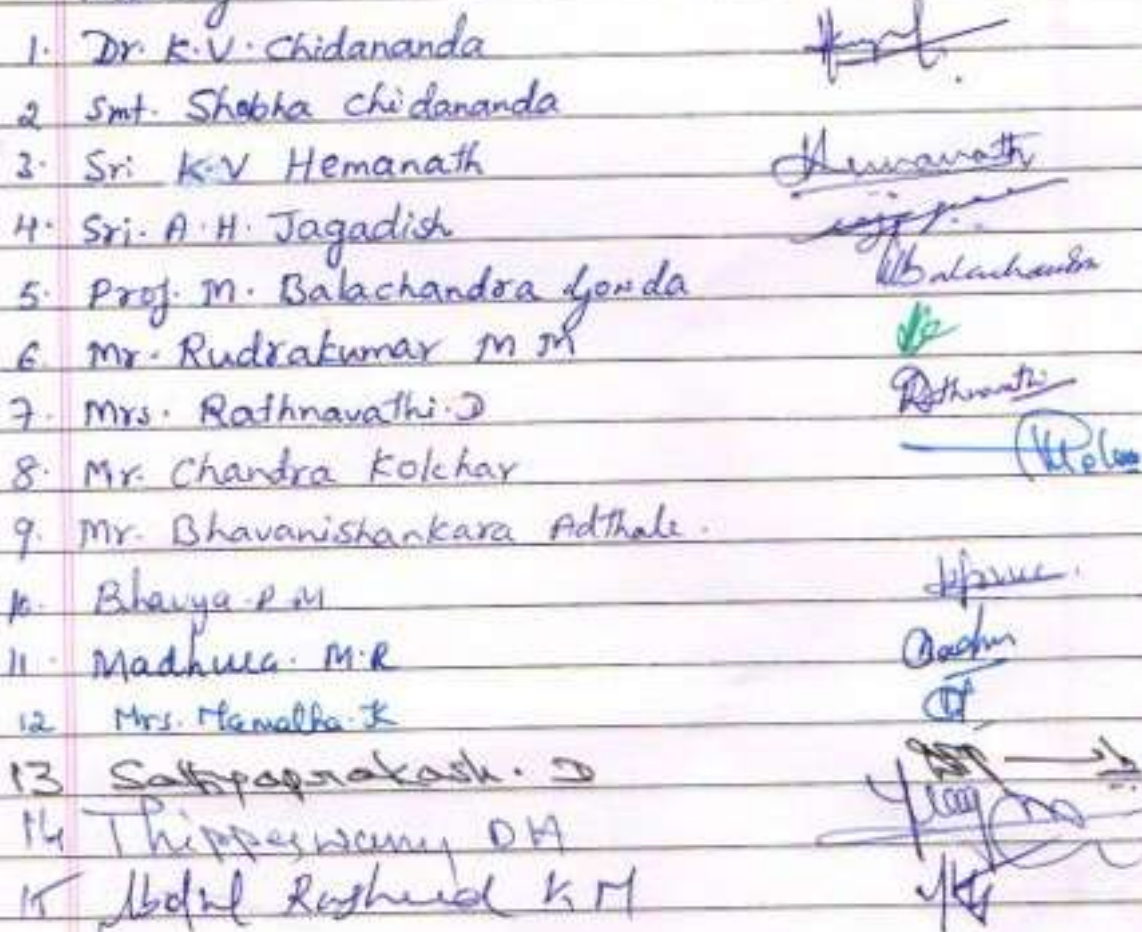 1. Dr. K.V. Chidananda
2 Smt. Shobha Chidananda
3. Sri K.V Hemanath Hemanath
4. Sri. A.H. Jagadish
5. Prof. M. Balachandra Gowda Balachandra
6 Mr. Rudrakumar M M
7. Mrs. Rathnavathi.D Rathnavathi
8. Mr. Chandra Kolchar
9. Mr. Bhavanishankara Adthale.
10. Bhavya.P.M
11. Madhura. M.R
12 Mrs. Mamatha.K
13 Sathyaprakash. D
14 Thippeswamy DH
15 Abdul Rasheed K M